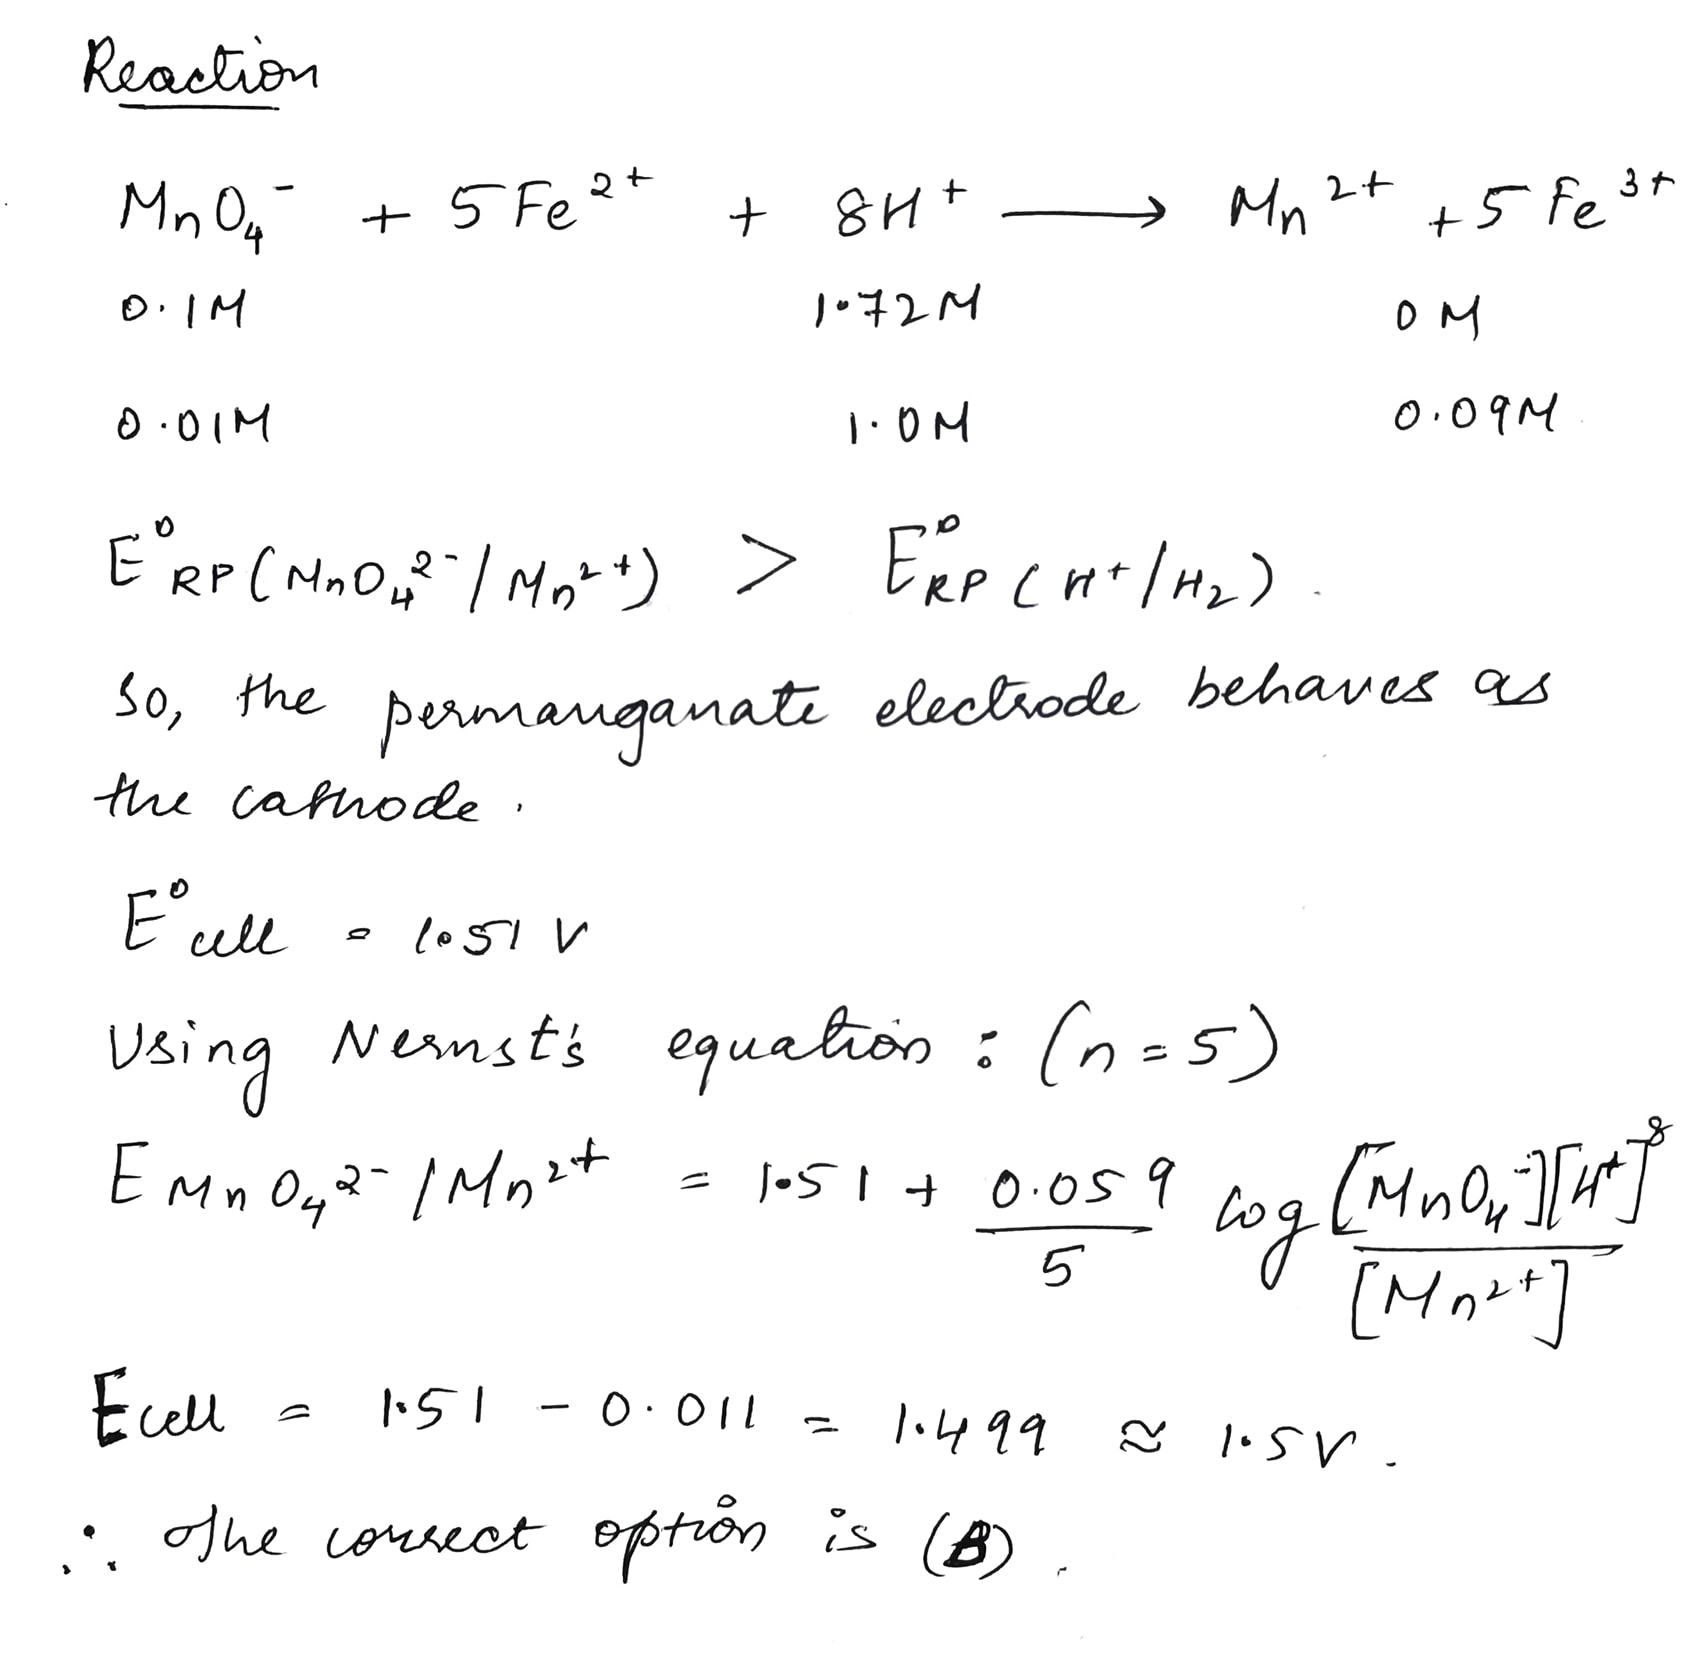 Reaction
MnO₄⁻ + 5Fe²⁺ + 8H⁺ ⟶ Mn²⁺ + 5Fe³⁺
0.1M 1.72M 0M
0.01M 1.0M 0.09M
E°RP(MnO₄²⁻/Mn²⁺) > E°RP(H⁺/H₂).
So, the permanganate electrode behaves as
the cathode.
E°cell = 1.51 V
Using Nernst's equation : (n = 5)
E MnO₄²⁻/Mn²⁺ = 1.51 + 0.059/5 log [MnO₄⁻][H⁺]⁸/[Mn²⁺]
Ecell = 1.51 - 0.011 = 1.499 ≈ 1.5V.
∴ The correct option is (B).